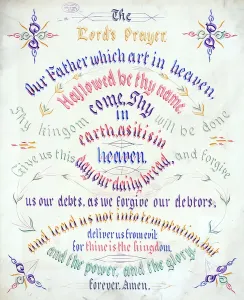 The
Lord's Prayer.
Our Father which art in heaven,
Hallowed be thy name,
Thy kingdom come, Thy will be done
in
earth, as it is in
heaven.
Give us this day our daily bread, and forgive
us our debts, as we forgive our debtors;
and lead us not into temptation, but
deliver us from evil:
for thine is the kingdom,
and the power, and the glory,
forever. Amen.